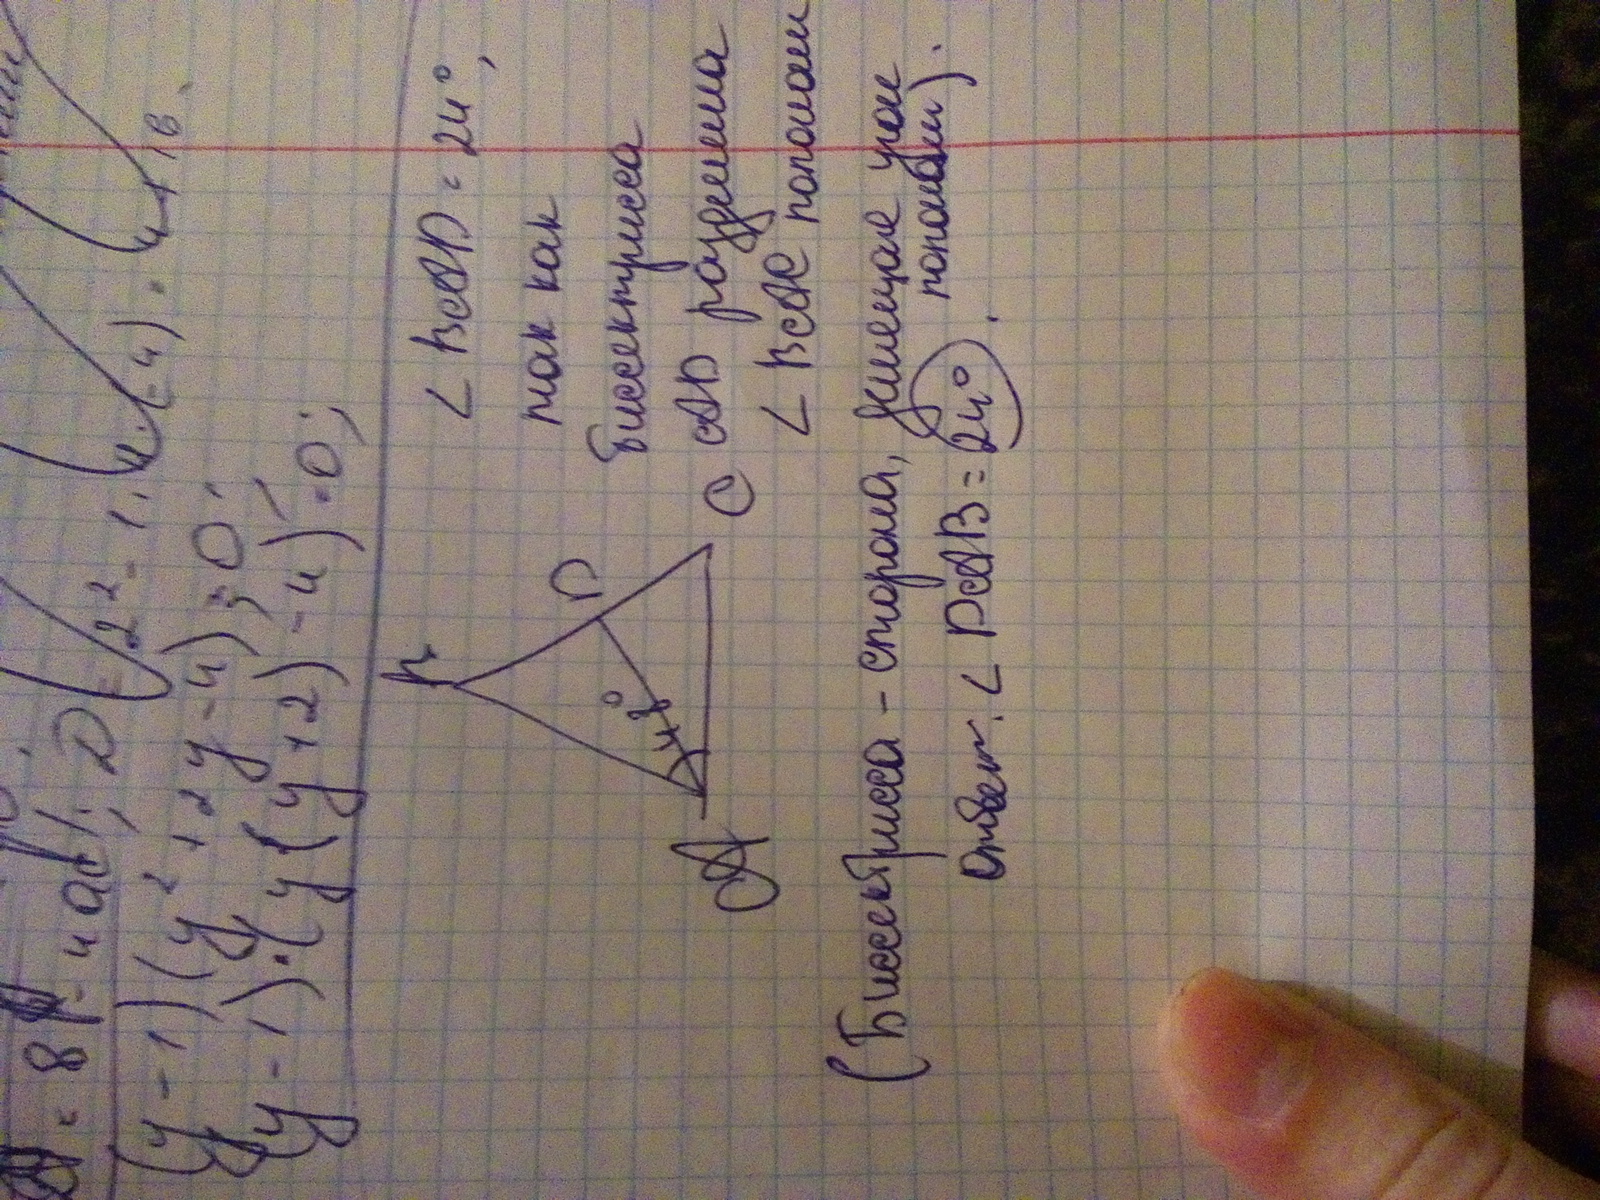 = 8 - 4ac; D = 2² - 1 · 4 · (-4) = 4 + 16.
(y - 1)(y² + 2y - 4) = 0;
(y - 1) · (y(y + 2) - 4) = 0;
∠ BAD = 24°,
так как
биссектриса
AD разделила
∠ BAC пополам
B
D
48°
A
C
(Биссектриса - сторона, делящае угол
пополам).
Ответ: ∠ DAB = 24°.